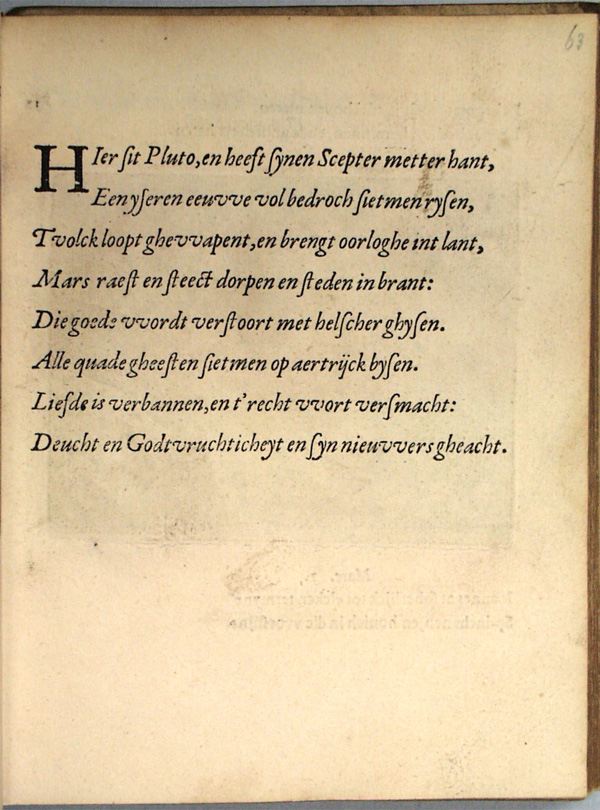 63
HIer ſit Pluto, en heeft ſynen Scepter metter hant,
Een yſeren eeuvve vol bedroch ſietmen ryſen,
Tvolck loopt ghevvapent, en brengt oorloghe int lant,
Mars raeſt en ſteeckt dorpen en ſteden in brant:
Die goede vvordt verſtoort met helſcher ghyſen.
Alle quade gheeſten ſietmen op aertrijck byſen.
Liefde is verbannen, en t'recht vvort verſmacht:
Deucht en Godtvruchticheyt en ſyn nieuvvers gheacht.